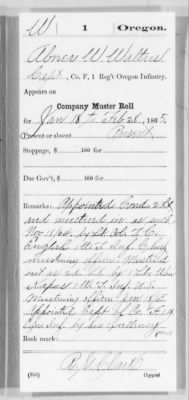 W | 1 | Oregon.
Abner W Waters
Capt, Co. F, 1 Reg't Oregon Infantry.
Appears on
Company Muster Roll
for Jan 18 to Feb 28, 1865.
Present or absent Present
Stoppage, $ 100 for
Due Gov't, $ 100 for
Remarks: Appointed 2 Lt
and mustered in as such
Nov 18/64 by Lt Col T. C.
English 1 W. T. Inf. Chief
mustering officer. Mustered
out as 2 Lt by 1 Lt
1 W. T. Inf. U.S.
Mustering officer Jan 18/65
Appointed Capt of Co. F 1st
Ogn Inf by his Excellency
Book mark:
R. G. Clark
(359) Copyist.